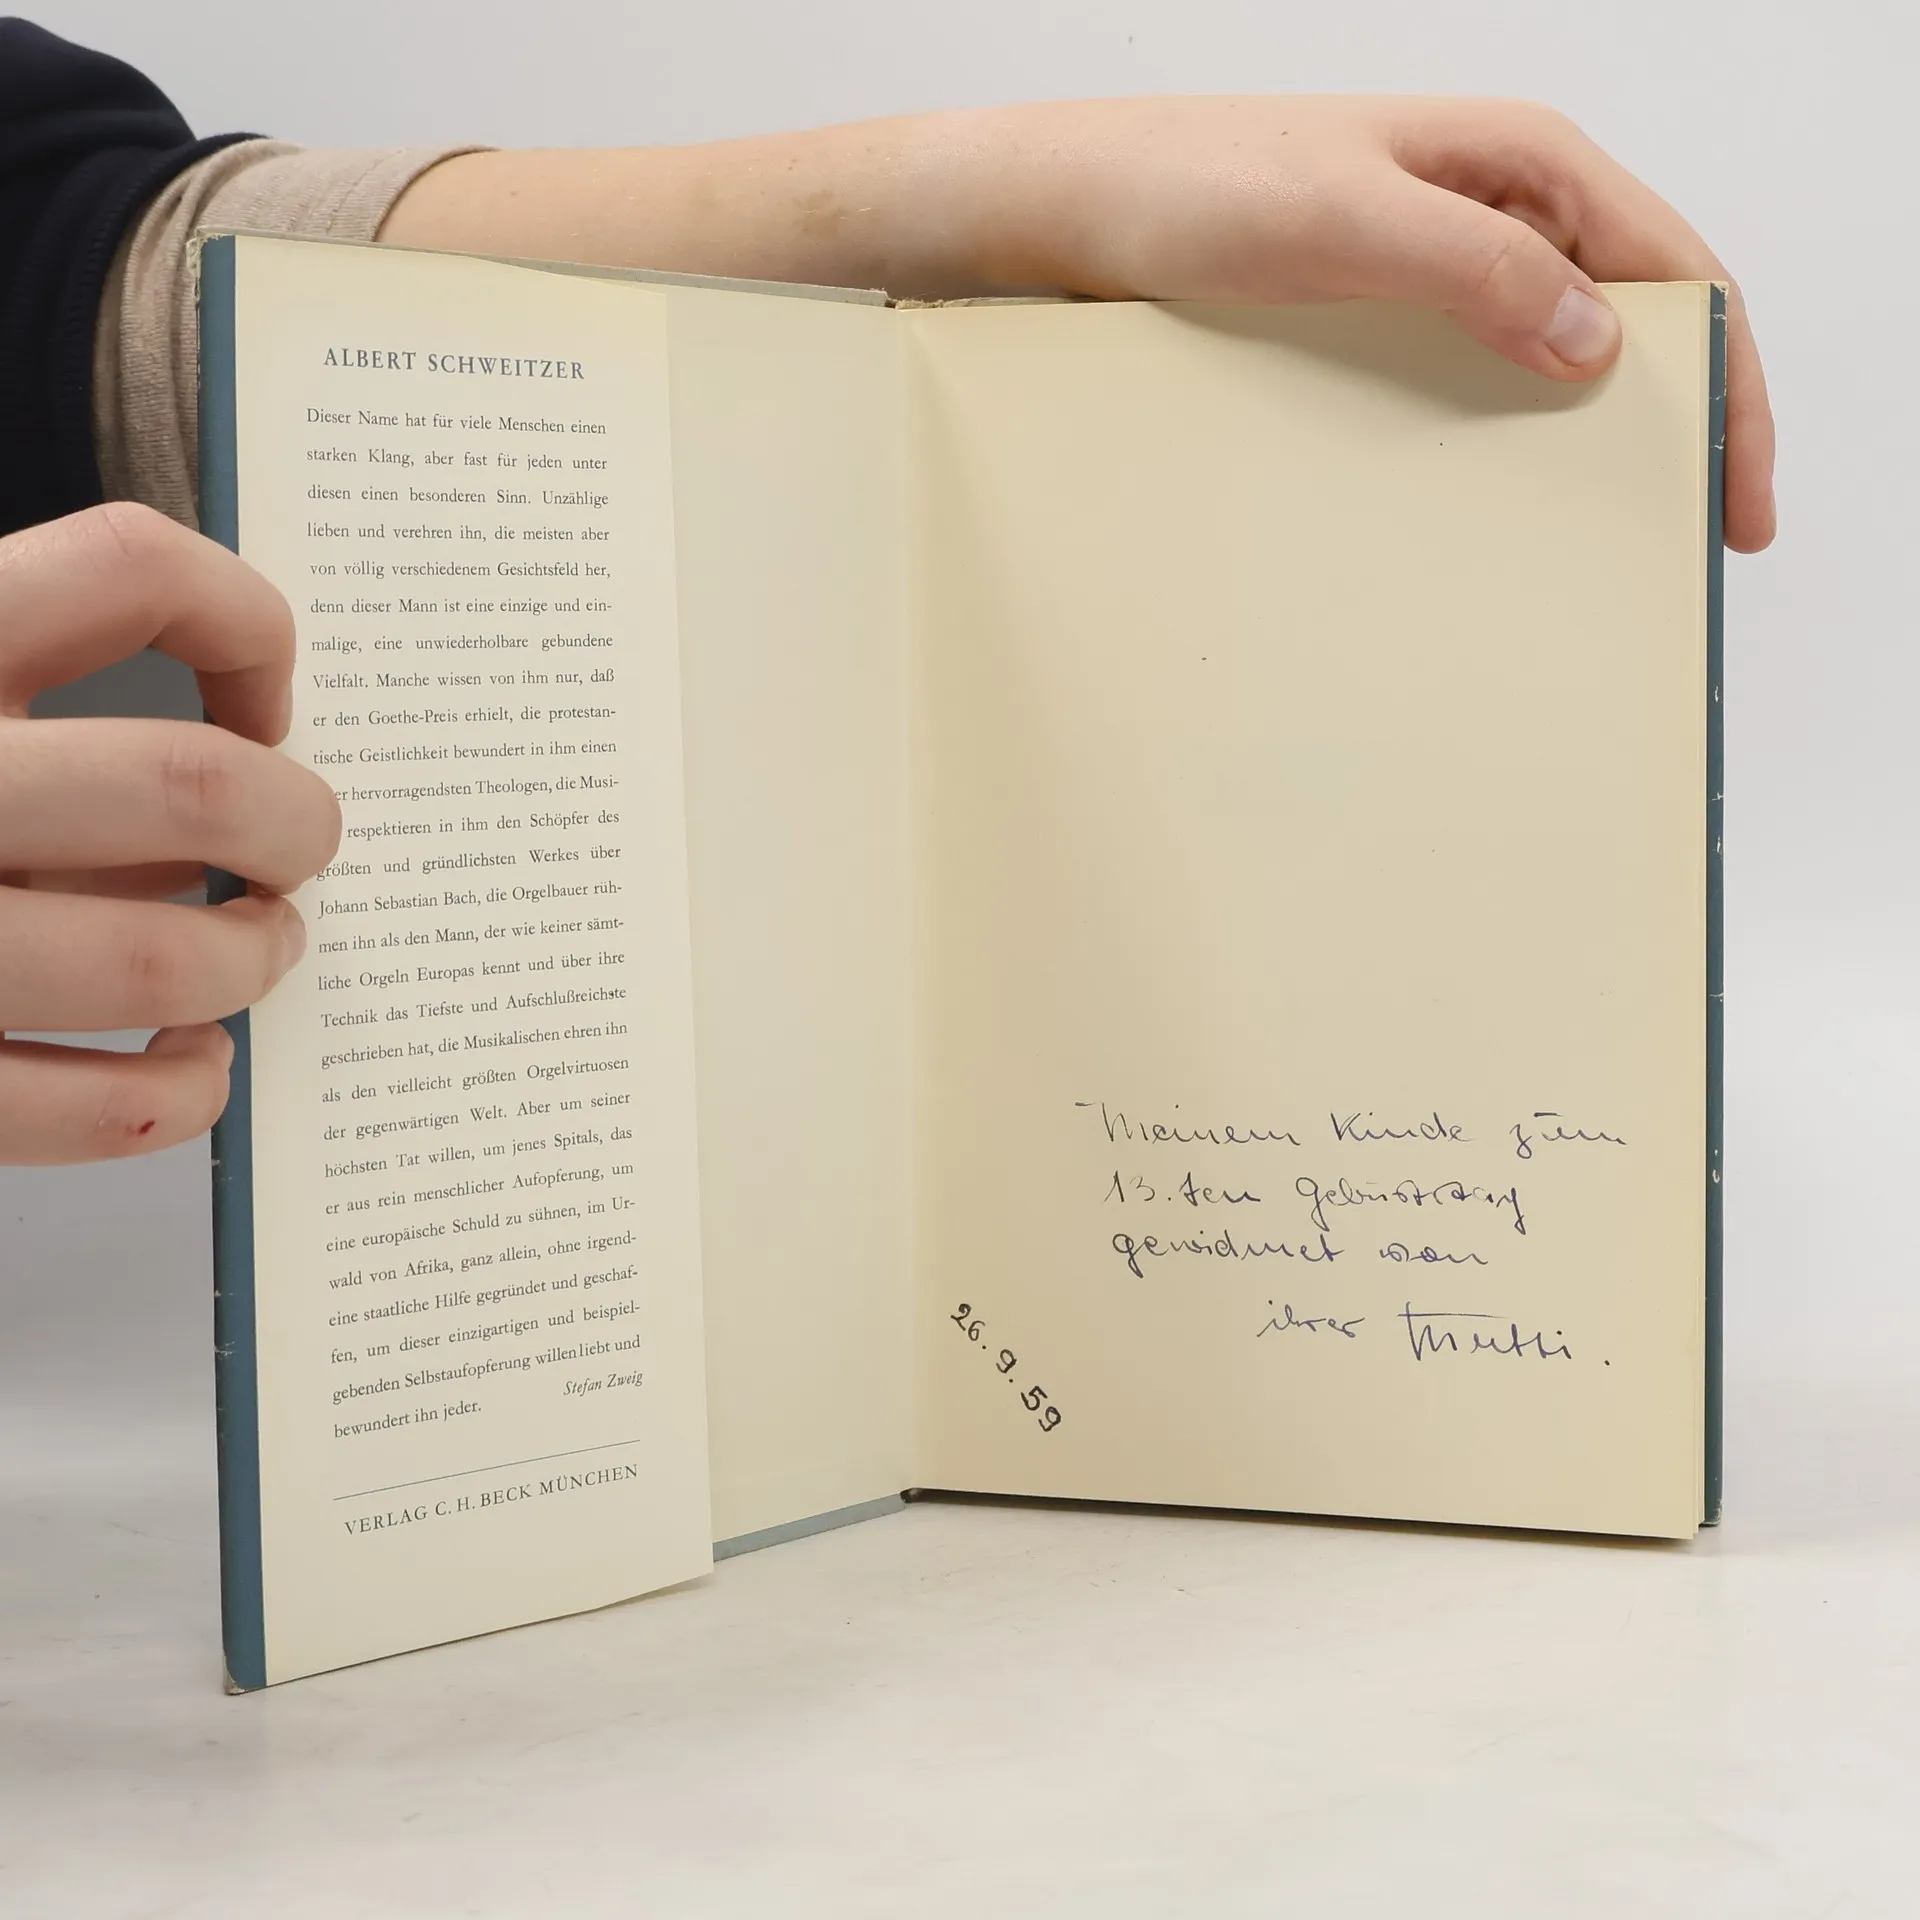 ALBERT SCHWEITZER
Dieser Name hat für viele Menschen einen
starken Klang, aber fast für jeden unter
diesen einen besonderen Sinn. Unzählige
lieben und verehren ihn, die meisten aber
von völlig verschiedenem Gesichtsfeld her,
denn dieser Mann ist eine einzige und ein-
malige, eine unwiederholbare gebundene
Vielfalt. Manche wissen von ihm nur, daß
er den Goethe-Preis erhielt, die protestan-
tische Geistlichkeit bewundert in ihm einen
er hervorragendsten Theologen, die Musi-
respektieren in ihm den Schöpfer des
größten und gründlichsten Werkes über
Johann Sebastian Bach, die Orgelbauer rüh-
men ihn als den Mann, der wie keiner sämt-
liche Orgeln Europas kennt und über ihre
Technik das Tiefste und Aufschlußreichste
geschrieben hat, die Musikalischen ehren ihn
als den vielleicht größten Orgelvirtuosen
der gegenwärtigen Welt. Aber um seiner
höchsten Tat willen, um jenes Spitals, das
er aus rein menschlicher Aufopferung, um
eine europäische Schuld zu sühnen, im Ur-
wald von Afrika, ganz allein, ohne irgend-
eine staatliche Hilfe gegründet und geschaf-
fen, um dieser einzigartigen und beispiel-
gebenden Selbstaufopferung willen liebt und
bewundert ihn jeder.
Stefan Zweig
VERLAG C. H. BECK MÜNCHEN
Meinem Kinde zum
13.ten Geburtstag
gewidmet von
ihrer Mutti.
26.9.59